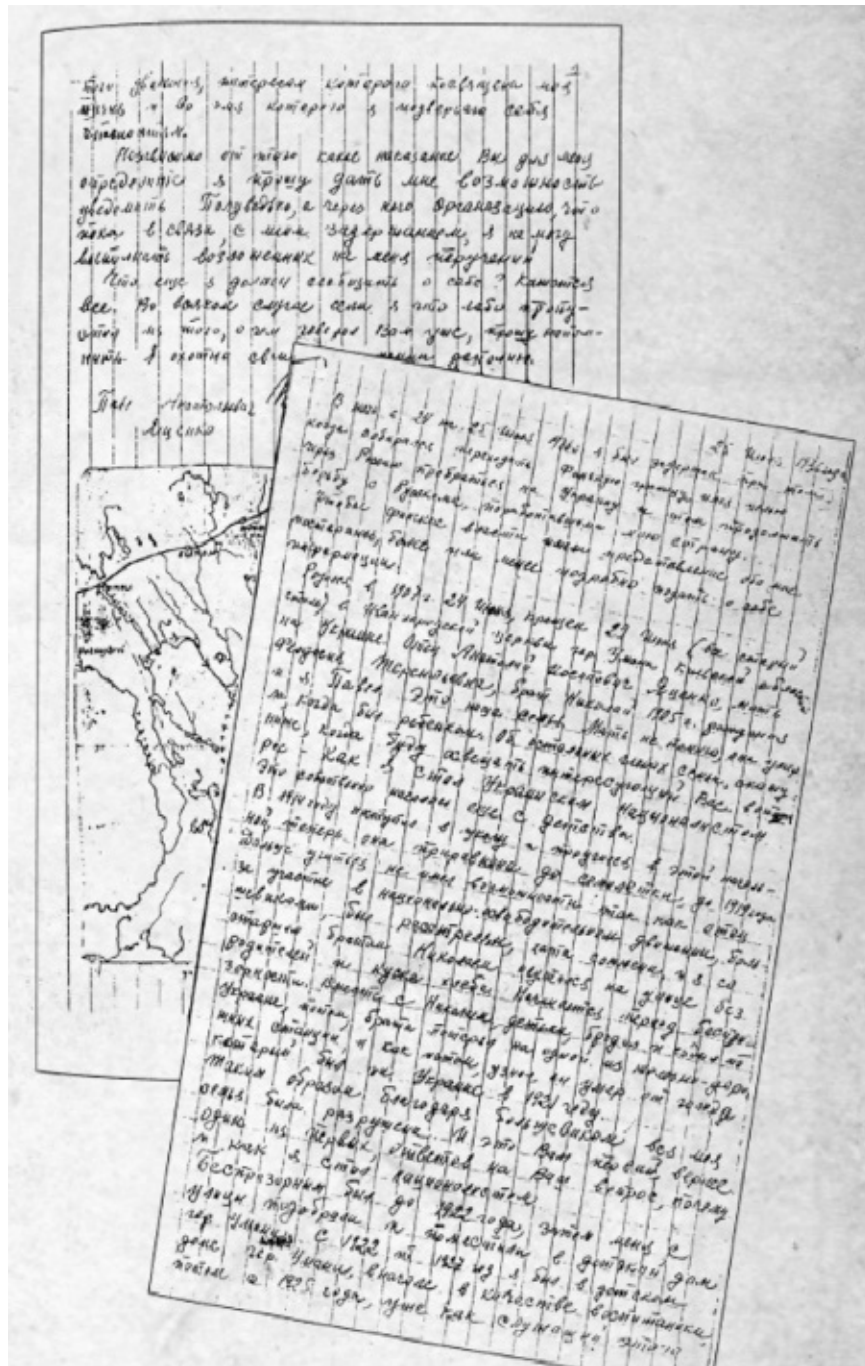 того движения, интересам которого посвящена моя
жизнь и во имя которого я подвергаю себя
опасностям.
Независимо от того какое наказание Вы для меня
определите я прошу дать мне возможность
уведомить Полуведько, а через него организацию, что
пока в связи с моим задержанием, я не могу
выполнять возложенных на меня поручений
Что еще я должен сообщить о себе? Кажется
все. Во всяком случае если я что либо пропу-
стил из того, о чем говорил Вам уже, прошу напом-
нить я охотно
Павел Анатольевич
Яценко
25 Июля
В ночь с 24 на 25 Июля я был задержан при том,
когда собирался переходить Финскую границу имея целью
через Россию пробраться на Украину и там продолжать
борьбу с Русскими, поработившими мою страну.
Чтобы финские власти имели представление обо мне
постараюсь более или менее подробно подать о себе
информации.
Родился в 1907 г. 24 Июня, крещен 29 Июня (по старому
стилю) в церкви гор Умани Киевской
на Украине Отец Анатолий Яценко, мать
Терентьевна, брат Николай 1905 г. рождения
и я Павел. Это наша семья. Мать не помню, она умерла
когда я был ребенком. Об остальных членах семьи, скажу
ниже, когда буду освещать интересующий Вас воп-
рос - Как я стал Украинским Националистом
Это еще с детства.
В 1914 году поступил в школу и учился в этой началь-
ной, теперь она приравнена до семилетки, до 1919 года
Дальше учиться не имел возможности так как отец
за участие в национально-освободительном движении, боль-
шевиками, был расстрелян, хата сожжена, и я со
старшим братом Николаем остались на улице без
родителей и куска хлеба. Начинается период беспри-
зорности. Вместе с Николаем, детьми, бродил и ходил по
Украине, потом, брата потерял на одной из железно-доро-
жных станций, и как потом, узнал он умер от голода
который был на Украине в 1921 году.
Таким образом благодаря большевикам вся моя
семья была разрушена И это Вам первый, вернее
один из первых ответов на Ваш вопрос, почему
и как я стал националистом
Беспризорным был до 1922 года, затем меня с
улицы подобрали и поместили в детский дом
гор Умани. С 1922 по 1927 год я был в детском
доме, гор Умани, вначале в качестве воспитанника,
потом с 1925 года, уже как служащий этого